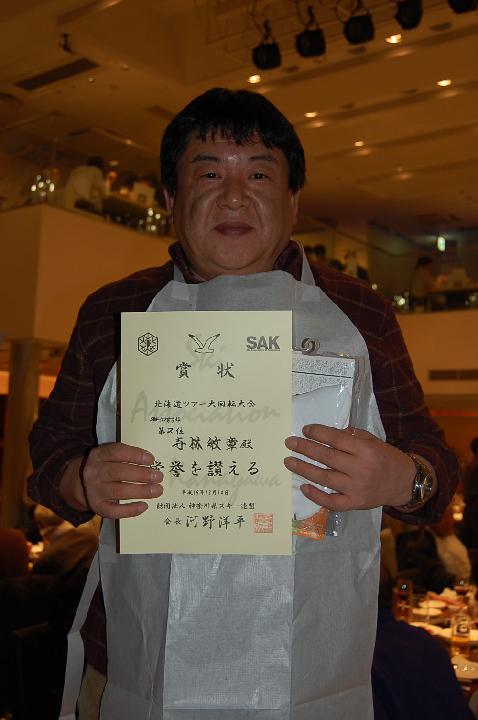 SAK
賞状
Ski
Association
Kanagawa
北海道ツアー大回転大会
第2位
寺林敏章殿
栄誉を讃える
平成18年12月14日
財団法人神奈川県スキー連盟
会長 河野洋平